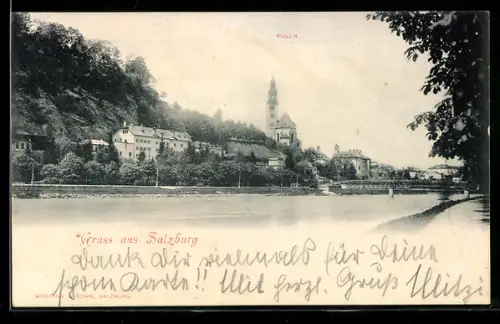 MÜLLN
Gruss aus Salzburg
Dank dir vielmals für Deine
schöne Karte!! Mit herzl. Gruß Mitzi
SALZBURG.